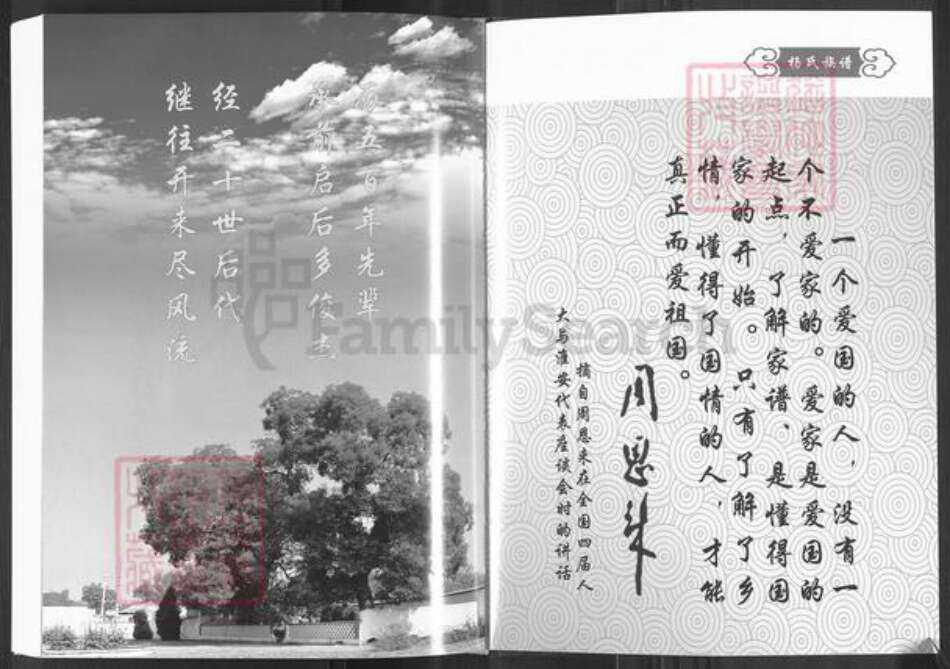 五百年先辈
承前启后多俊杰
经二十世后代
继往开来尽风流
杨氏族谱
一个爱国的人，没有一
个不爱家的。爱家是爱国的
起点，了解家谱、是懂得国
家的开始。只有了解了乡
情，懂得了国情的人，才能
真正而爱祖国。
周恩来
摘自周恩来在全国四届人
大与淮安代表座谈会时的讲话
FamilySearch